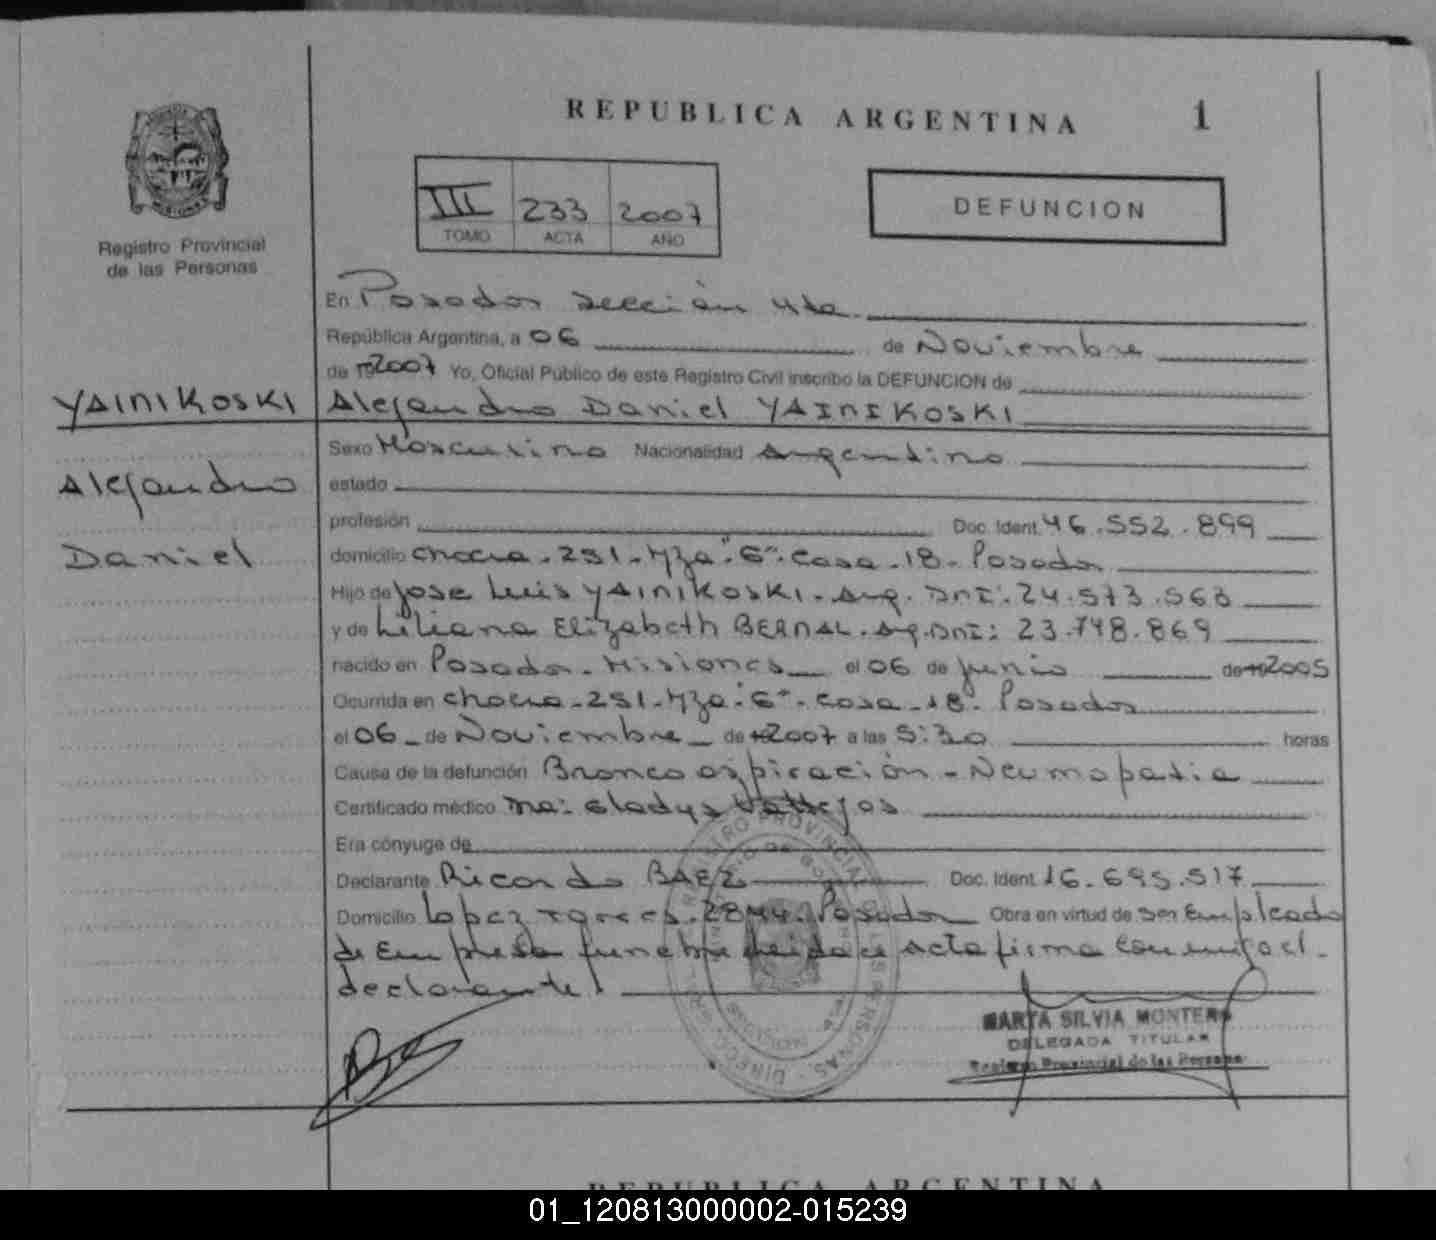 REPUBLICA ARGENTINA 1
III 233 2007
TOMO ACTA AÑO
DEFUNCION
Registro Provincial
de las Personas
En Posadas sección 4ta
República Argentina, a 06 de Noviembre
de 192007 Yo, Oficial Público de este Registro Civil inscribo la DEFUNCION de
YAINIKOSKI
Alejandro Daniel YAINIKOSKI
Alejandro
Daniel
Sexo Masculino Nacionalidad Argentino
estado
profesión Doc. Ident. 46.552.899
domicilio chacra - 251 - Mza "G" - casa - 18 - Posadas
Hijo de Jose Luis YAINIKOSKI - Arg. DNI: 24.573.563
y de Liliana Elizabeth BERNAL - Ag. DNI: 23.748.869
nacido en Posadas - Misiones el 06 de Junio de 192005
Ocurrida en chacra - 251 - Mza "G" - casa - 18 - Posadas
el 06 de Noviembre de 192007 a las 5:30 horas
Causa de la defunción Broncoaspiración - Neumopatia
Certificado médico Dra: Gladys Vallejos
Era cónyuge de
Declarante Ricardo BAEZ Doc. Ident. 16.695.517
Domicilio Lopez Torres - 2844 - Posadas Obra en virtud de ser Empleado
de Empresa funebre leida el acta firma conmigo el
declarante
REGISTRO PROVINCIAL DE LAS PERSONAS
MARTA SILVIA MONTERO
DELEGADA TITULAR
Registro Provincial de las Personas
REPUBLICA ARGENTINA
01_120813000002-015239